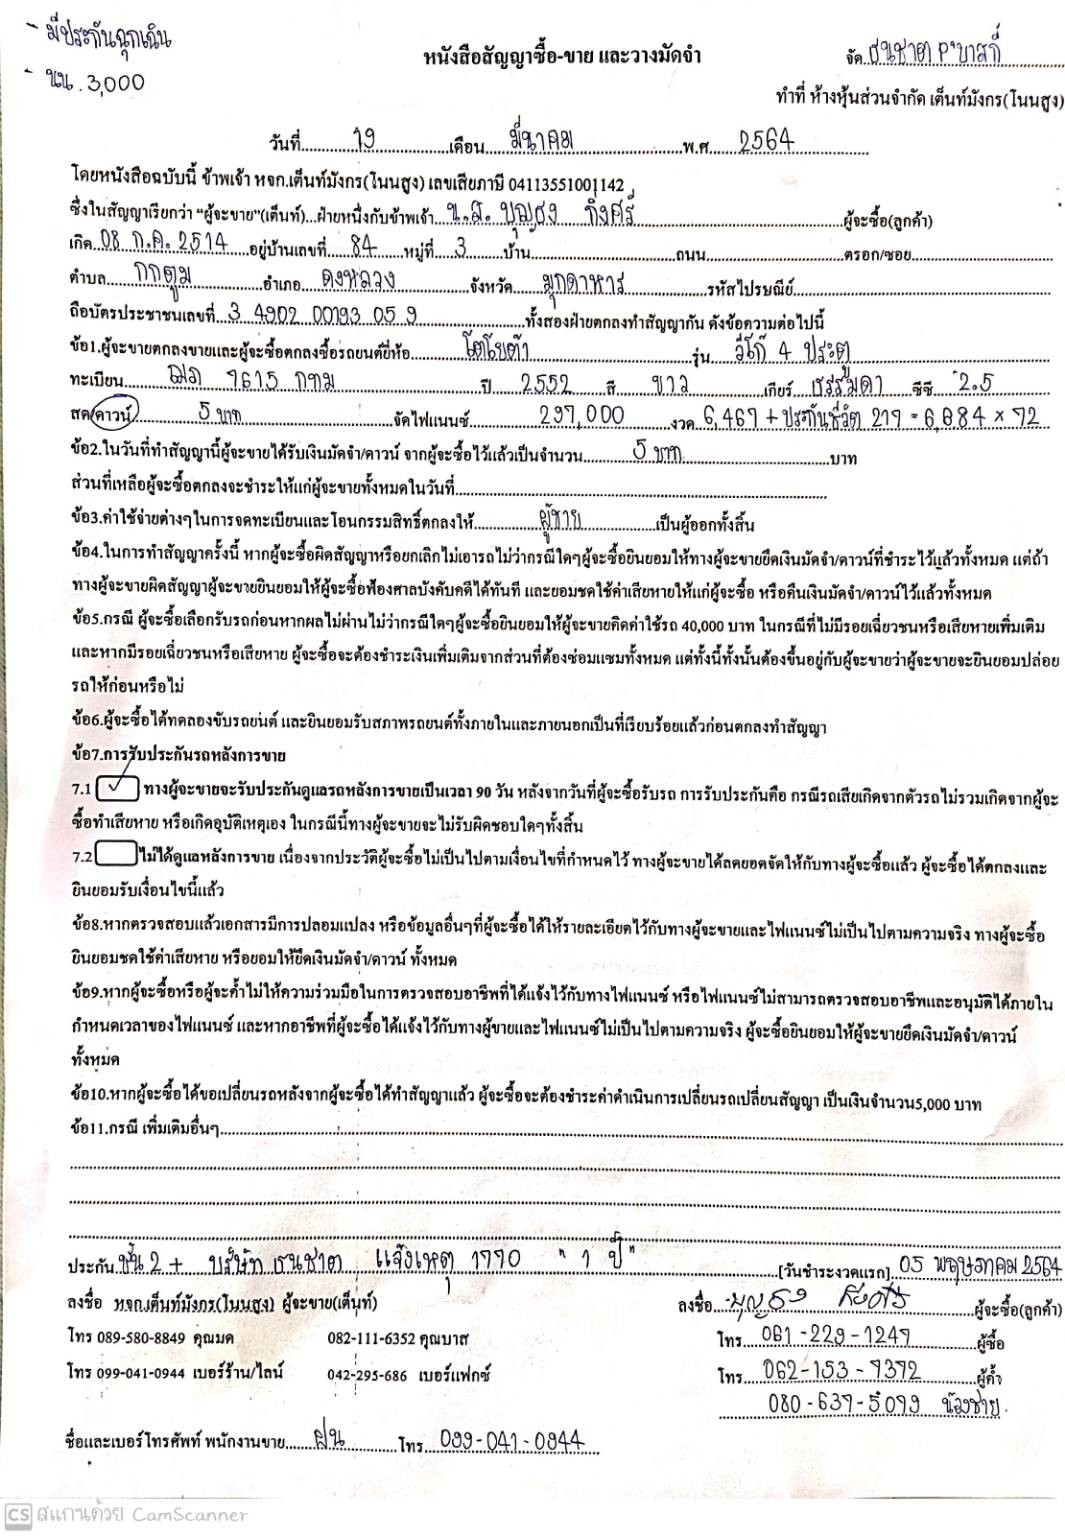 - มีประกันฉุกเฉิน
- นน. 3,000
หนังสือสัญญาซื้อ-ขาย และวางมัดจำ
จัด ธนชาต P'บาสก์
ทำที่ ห้างหุ้นส่วนจำกัด เต็นท์มังกร(โนนสูง)
วันที่ 19 เดือน มีนาคม พ.ศ 2564
โดยหนังสือฉบับนี้ ข้าพเจ้า หจก.เต็นท์มังกร(โนนสูง) เลขเสียภาษี 04113551001142
ซึ่งในสัญญาเรียกว่า “ผู้จะขาย”(เต็นท์)...ฝ่ายหนึ่งกับข้าพเจ้า น.ส. บุญธง กิ่งศรี ผู้จะซื้อ(ลูกค้า)
เกิด 08 ก.ค. 2514 อยู่บ้านเลขที่ 84 หมู่ที่ 3 บ้าน ถนน ตรอก/ซอย
ตำบล กกตูม อำเภอ ดงหลวง จังหวัด มุกดาหาร รหัสไปรษณีย์
ถือบัตรประชาชนเลขที่ 3 4902 00193 05 9 ทั้งสองฝ่ายตกลงทำสัญญากัน ดังข้อความต่อไปนี้
ข้อ1.ผู้จะขายตกลงขายและผู้จะซื้อตกลงซื้อรถยนต์ยี่ห้อ โตโยต้า รุ่น วีโก้ 4 ประตู
ทะเบียน ฌภ 9615 กทม ปี 2552 สี ขาว เกียร์ ธรรมดา ซีซี 2.5
สด/ดาวน์ 5 บาท จัดไฟแนนซ์ 297,000 งวด 6,467 + ประกันชีวิต 217 = 6,684 × 72
ข้อ2.ในวันที่ทำสัญญานี้ผู้จะขายได้รับเงินมัดจำ/ดาวน์ จากผู้จะซื้อไว้แล้วเป็นจำนวน 5 บาท บาท
ส่วนที่เหลือผู้จะซื้อตกลงจะชำระให้แก่ผู้จะขายทั้งหมดในวันที่
ข้อ3.ค่าใช้จ่ายต่างๆในการจดทะเบียนและโอนกรรมสิทธิ์ตกลงให้ ผู้ขาย เป็นผู้ออกทั้งสิ้น
ข้อ4.ในการทำสัญญาครั้งนี้ หากผู้จะซื้อผิดสัญญาหรือยกเลิกไม่เอารถไม่ว่ากรณีใดๆผู้จะซื้อยินยอมให้ทางผู้จะขายยึดเงินมัดจำ/ดาวน์ที่ชำระไว้แล้วทั้งหมด แต่ถ้า
ทางผู้จะขายผิดสัญญาผู้จะขายยินยอมให้ผู้จะซื้อฟ้องศาลบังคับคดีได้ทันที และยอมชดใช้ค่าเสียหายให้แก่ผู้จะซื้อ หรือคืนเงินมัดจำ/ดาวน์ไว้แล้วทั้งหมด
ข้อ5.กรณี ผู้จะซื้อเลือกรับรถก่อนหากผลไม่ผ่านไม่ว่ากรณีใดๆผู้จะซื้อยินยอมให้ผู้จะขายคิดค่าใช้รถ 40,000 บาท ในกรณีที่ไม่มีรอยเฉี่ยวชนหรือเสียหายเพิ่มเติม
และหากมีรอยเฉี่ยวชนหรือเสียหาย ผู้จะซื้อจะต้องชำระเงินเพิ่มเติมจากส่วนที่ต้องซ่อมแซมทั้งหมด แต่ทั้งนี้ทั้งนั้นต้องขึ้นอยู่กับผู้จะขายว่าผู้จะขายจะยินยอมปล่อย
รถให้ก่อนหรือไม่
ข้อ6.ผู้จะซื้อได้ทดลองขับรถยนต์ และยินยอมรับสภาพรถยนต์ทั้งภายในและภายนอกเป็นที่เรียบร้อยแล้วก่อนตกลงทำสัญญา
ข้อ7.การรับประกันรถหลังการขาย
7.1 ✓ ทางผู้จะขายจะรับประกันดูแลรถหลังการขายเป็นเวลา 90 วัน หลังจากวันที่ผู้จะซื้อรับรถ การรับประกันคือ กรณีรถเสียเกิดจากตัวรถไม่รวมเกิดจากผู้จะ
ซื้อทำเสียหาย หรือเกิดอุบัติเหตุเอง ในกรณีนี้ทางผู้จะขายจะไม่รับผิดชอบใดๆทั้งสิ้น
7.2 ไม่ได้ดูแลหลังการขาย เนื่องจากประวัติผู้จะซื้อไม่เป็นไปตามเงื่อนไขที่กำหนดไว้ ทางผู้จะขายได้ลดยอดจัดให้กับทางผู้จะซื้อแล้ว ผู้จะซื้อได้ตกลงและ
ยินยอมรับเงื่อนไขนี้แล้ว
ข้อ8.หากตรวจสอบแล้วเอกสารมีการปลอมแปลง หรือข้อมูลอื่นๆที่ผู้จะซื้อได้ให้รายละเอียดไว้กับทางผู้จะขายและไฟแนนซ์ไม่เป็นไปตามความจริง ทางผู้จะซื้อ
ยินยอมชดใช้ค่าเสียหาย หรือยอมให้ยึดเงินมัดจำ/ดาวน์ ทั้งหมด
ข้อ9.หากผู้จะซื้อหรือผู้จะค้ำไม่ให้ความร่วมมือในการตรวจสอบอาชีพที่ได้แจ้งไว้กับทางไฟแนนซ์ หรือไฟแนนซ์ไม่สามารถตรวจสอบอาชีพและอนุมัติได้ภายใน
กำหนดเวลาของไฟแนนซ์ และหากอาชีพที่ผู้จะซื้อได้แจ้งไว้กับทางผู้ขายและไฟแนนซ์ไม่เป็นไปตามความจริง ผู้จะซื้อยินยอมให้ผู้จะขายยึดเงินมัดจำ/ดาวน์
ทั้งหมด
ข้อ10.หากผู้จะซื้อได้ขอเปลี่ยนรถหลังจากผู้จะซื้อได้ทำสัญญาแล้ว ผู้จะซื้อจะต้องชำระค่าดำเนินการเปลี่ยนรถเปลี่ยนสัญญา เป็นเงินจำนวน5,000 บาท
ข้อ11.กรณี เพิ่มเติมอื่นๆ
ประกัน ชั้น 2 + บริษัท ธนชาต แจ้งเหตุ 1770 " 1 ปี " [วันชำระงวดแรก] 05 พฤษภาคม 2564
ลงชื่อ หจก.เต็นท์มังกร(โนนสูง) ผู้จะขาย(เต็นท์) ลงชื่อ บุญธง กิ่งศรี ผู้จะซื้อ(ลูกค้า)
โทร 089-580-8849 คุณมด 082-111-6352 คุณบาส โทร 061-229-1247 ผู้ซื้อ
โทร 099-041-0944 เบอร์ร้าน/ไลน์ 042-295-686 เบอร์แฟกซ์ โทร 062-153-7372 ผู้ค้ำ
080-637-5079 น้องชาย.
ชื่อและเบอร์โทรศัพท์ พนักงานขาย ฝน โทร 099-041-0944
CS สแกนด้วย CamScanner